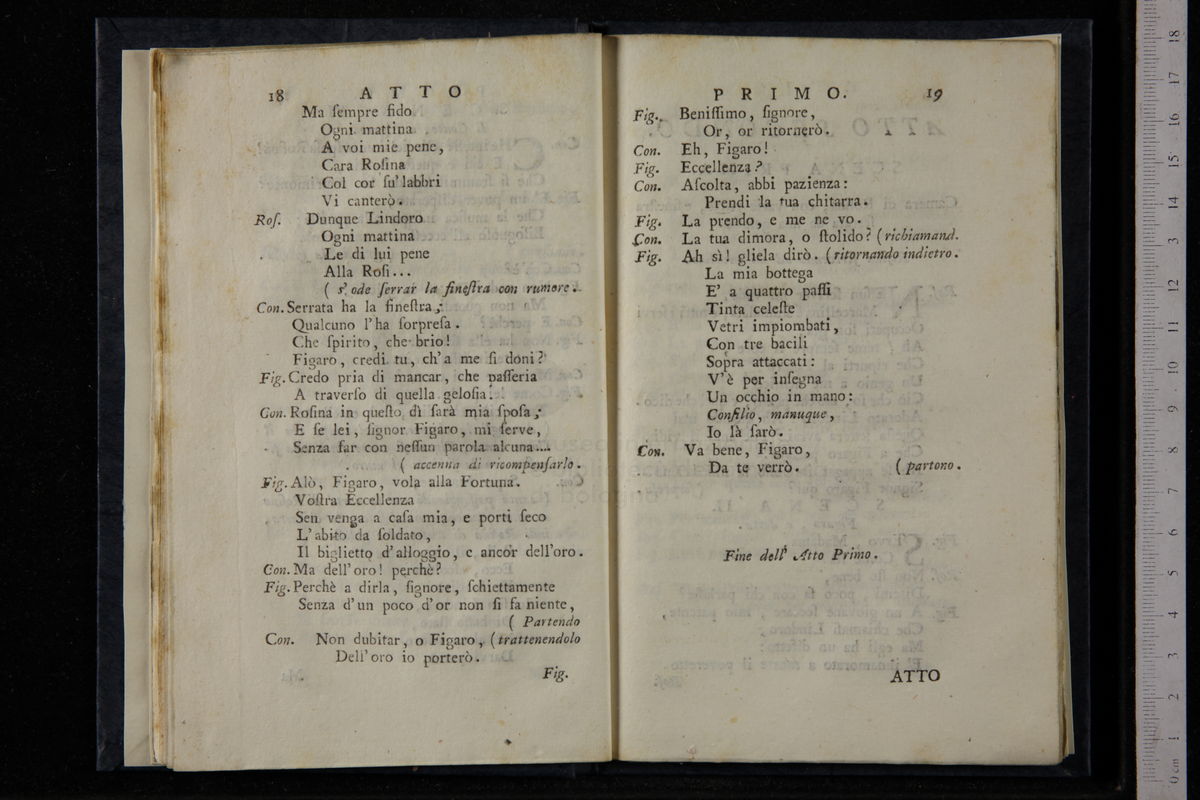 18 ATTO
Ma ſempre fido
Ogni mattina
A voi mie pene,
Cara Roſina
Col cor ſu' labbri
Vi canterò.
Roſ. Dunque Lindoro
Ogni mattina
Le di lui pene
Alla Roſi...
( s'ode ſerrar la fineſtra con rumore.
Con. Serrata ha la fineſtra;
Qualcuno l'ha ſorpreſa.
Che ſpirito, che brio!
Figaro, credi tu, ch'a me ſi doni?
Fig. Credo pria di mancar, che paſſeria
A traverſo di quella geloſia.
Con. Roſina in queſto dì ſarà mia ſpoſa;
E ſe lei, ſignor Figaro, mi ſerve,
Senza far con neſſun parola alcuna....
( accenna di ricompenſarlo.
Fig. Alò, Figaro, vola alla Fortuna.
Voſtra Eccellenza
Sen venga a caſa mia, e porti ſeco
L'abito da ſoldato,
Il biglietto d'alloggio, e ancor dell'oro.
Con. Ma dell'oro! perchè?
Fig. Perchè a dirla, ſignore, ſchiettamente
Senza d'un poco d'or non ſi fa niente,
( Partendo
Con. Non dubitar, o Figaro, (trattenendolo
Dell'oro io porterò.
Fig.
PRIMO. 19
Fig. Beniſſimo, ſignore,
Or, or ritornerò.
Con. Eh, Figaro!
Fig. Eccellenza?
Con. Aſcolta, abbi pazienza:
Prendi la tua chitarra.
Fig. La prendo, e me ne vo.
Con. La tua dimora, o ſtolido? (richiamand.
Fig. Ah sì! gliela dirò. (ritornando indietro.
La mia bottega
E' a quattro paſſi
Tinta celeſte
Vetri impiombati,
Con tre bacili
Sopra attaccati:
V'è per inſegna
Un occhio in mano:
Conſilio, manuque,
Io là ſarò.
Con. Va bene, Figaro,
Da te verrò. ( partono.
Fine dell' Atto Primo.
ATTO